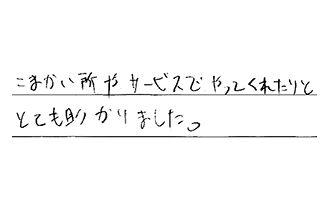 こまかい所やサービスでやってくれたりと
とても助かりました。